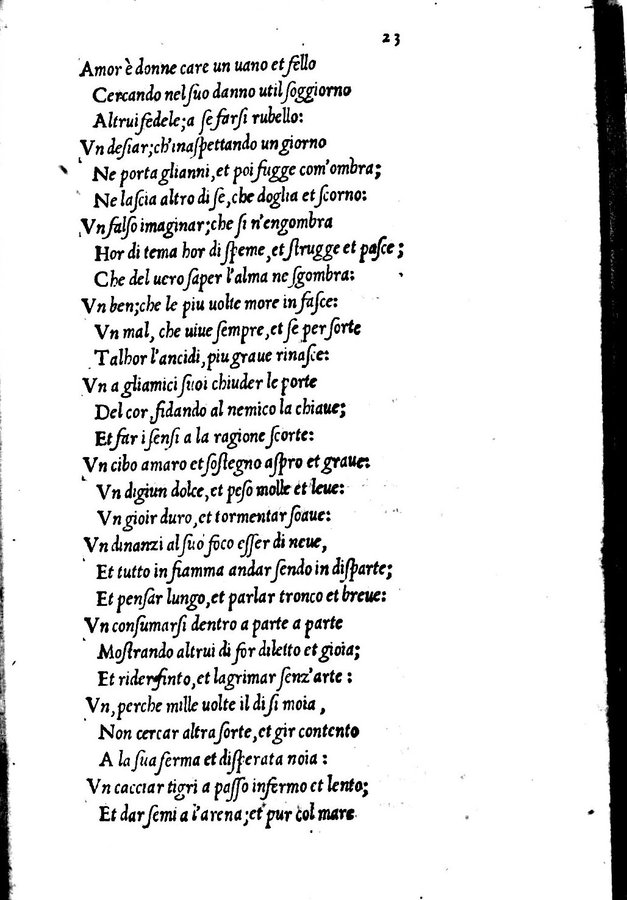 23
Amor è donne care un uano et fello
Cercando nel ſuo danno util ſoggiorno
Altrui fedele; a ſe farſi rubello:
Vn deſiar; ch'inaſpettando un giorno
Ne porta gli anni, et poi fugge com'ombra;
Ne laſcia altro di ſe, che doglia et ſcorno:
Vn falſo imaginar; che ſi n'engombra
Hor di tema hor di ſpeme, et ſtrugge et paſce;
Che del uero ſaper l'alma ne ſgombra:
Vn ben; che le piu uolte more in faſce:
Vn mal, che uiue ſempre, et ſe per ſorte
Talhor l'ancidi, piu graue rinaſce:
Vn a gli amici ſuoi chiuder le porte
Del cor, fidando al nemico la chiaue;
Et far i ſenſi a la ragione ſcorte:
Vn cibo amaro et ſoſtegno aſpro et graue:
Vn digiun dolce, et peſo molle et leue:
Vn gioir duro, et tormentar ſoaue:
Vn dinanzi al ſuo foco eſſer di neue,
Et tutto in fiamma andar ſendo in diſparte;
Et penſar lungo, et parlar tronco et breue:
Vn conſumarſi dentro a parte a parte
Moſtrando altrui di for diletto et gioia;
Et rider finto, et lagrimar ſenz'arte:
Vn, perche mille uolte il di ſi moia,
Non cercar altra ſorte, et gir contento
A la ſua ferma et diſperata noia:
Vn cacciar tigri a paſſo infermo et lento;
Et dar ſemi a l'arena; et pur col mare